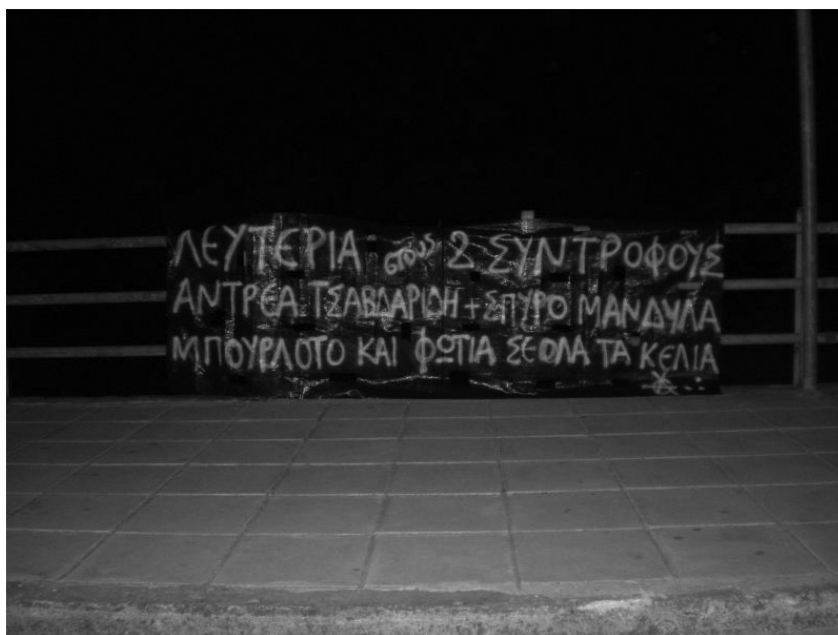 ΛΕΥΤΕΡΙΑ στους 2 ΣΥΝΤΡΟΦΟΥΣ
ΑΝΤΡΕΑ ΤΣΑΒΔΑΡΙΔΗ + ΣΠΥΡΟ ΜΑΝΔΥΛΑ
ΜΠΟΥΡΛΟΤΟ ΚΑΙ ΦΩΤΙΑ ΣΕ ΟΛΑ ΤΑ ΚΕΛΙΑ